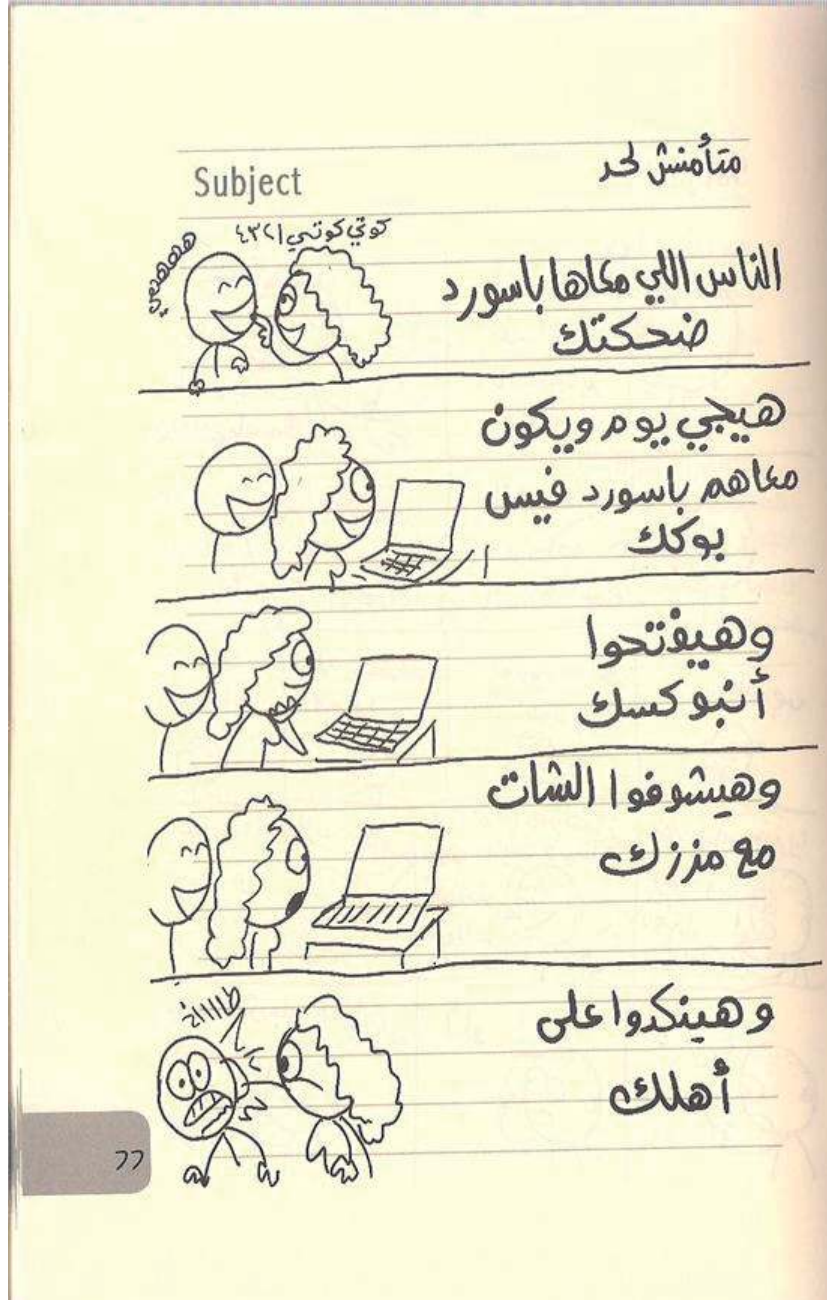 متأمنش لحد
Subject
كوتي كوتي ١٢٣٤
الناس اللي معاها باسورد
ضحكتك
هيجي يوم ويكون
معاهم باسورد فيس
بوكك
وهيفتحوا
أنبوكسك
وهيشوفوا الشات
مع مززك
وهينكدوا على
أهلك